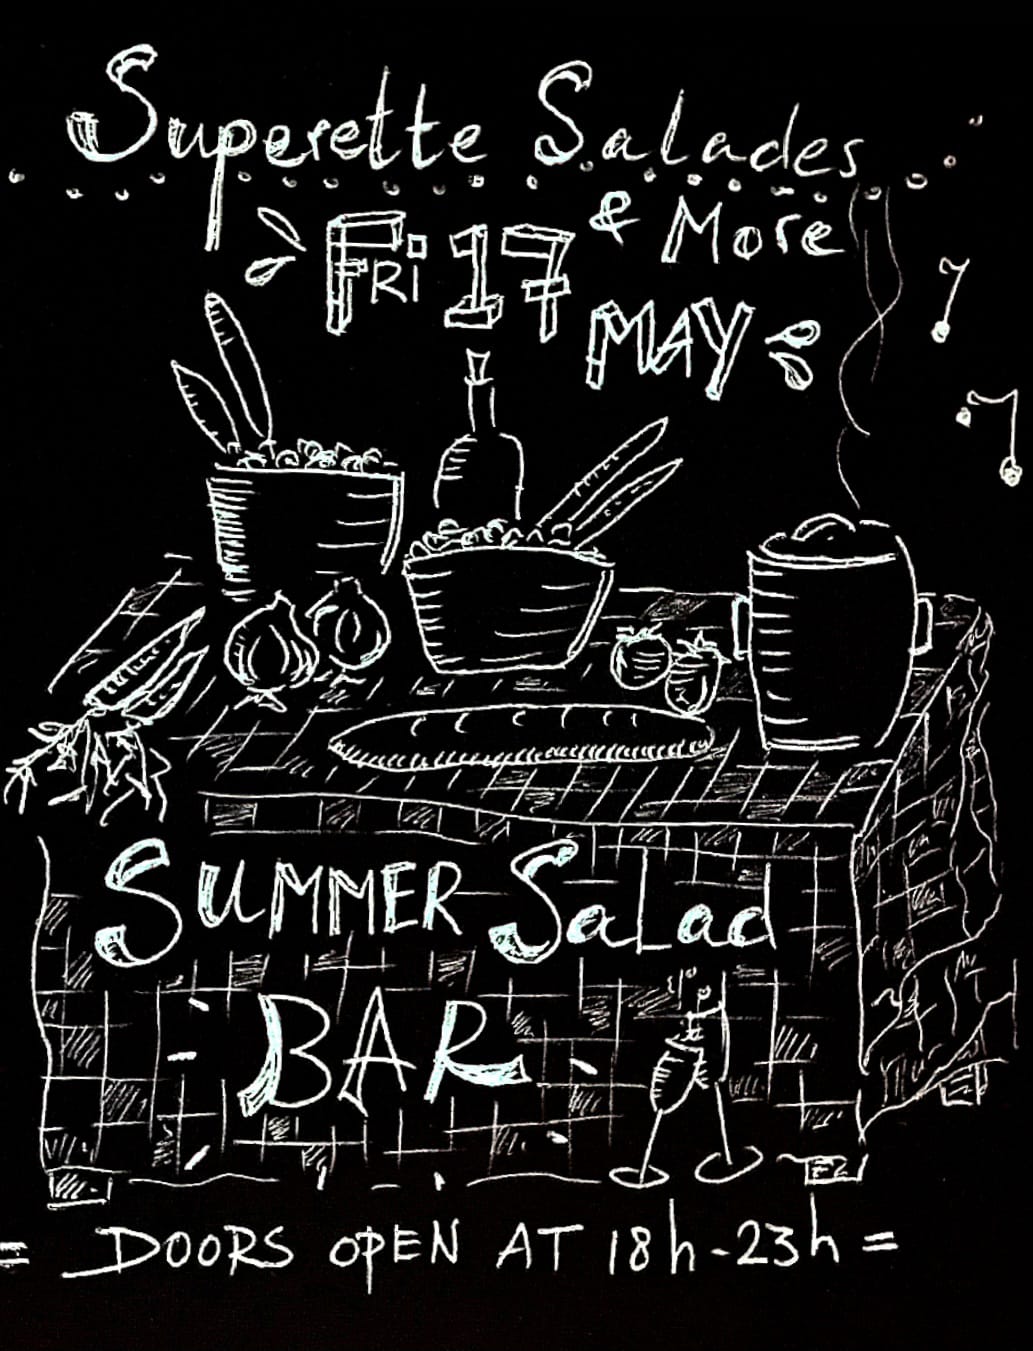 Superette Salades
& More
Fri 17
MAY
SUMMER Salad
BAR
= DOORS OPEN AT 18h-23h =